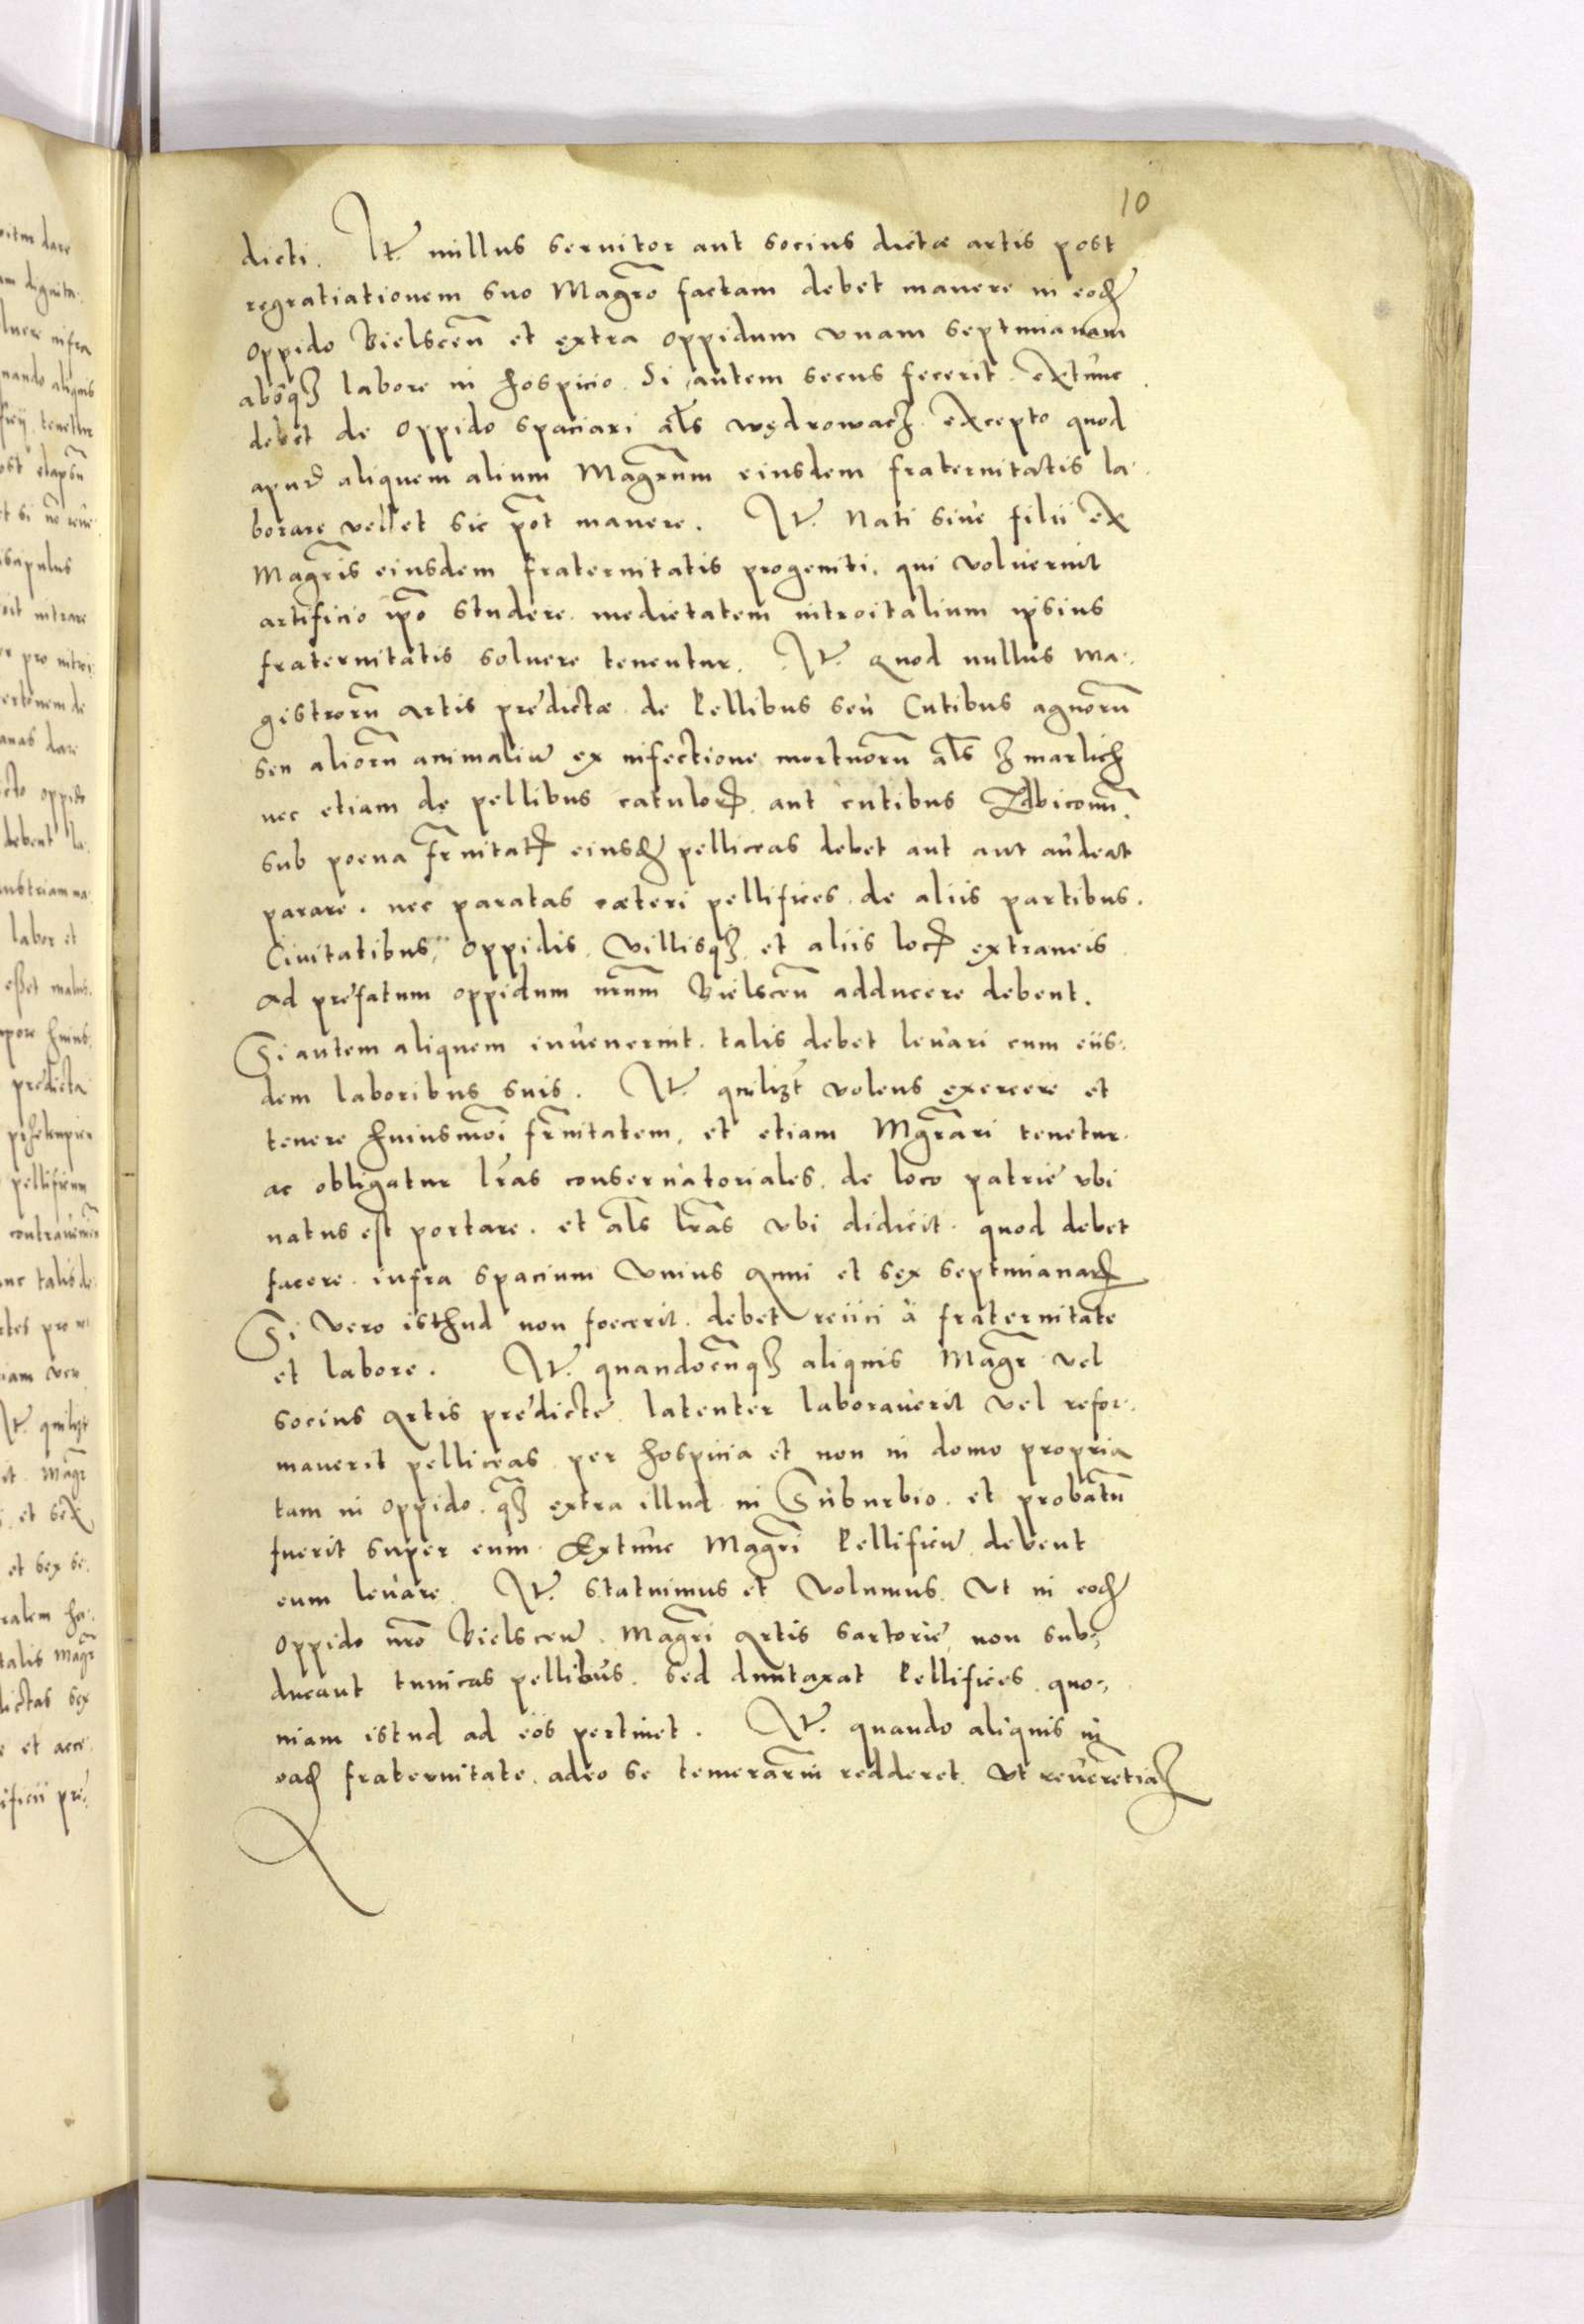 10
dicti. It. nullus seruitor aut socius dictæ artis post
regratiationem suo Magr̃o factam debet manere in eod̃
oppido Bielsceñ et extra oppidum vnam septimanam
absq̃ labore in hospicio. Si autem secus fecerit. extunc
debet de oppido spaciari al̃s wędrowacz. excepto quod
apud aliquem alium Magr̃um eiusdem fraternitatis la-
borare vellet sic põt manere. It. Nati siue filii ex
Magr̃is eiusdem fraternitatis progeniti. qui voluerint
artificio ip̃o studere. medietatem introitalium ipsius
fraternitatis soluere tenentur. It. quod nullus ma-
gistrorũ artis predictæ. de Pellibus seu Cutibus agnorũ
seu aliorũ animaliũ ex infectione mortuorũ al̃s zmarlich
nec etiam de pellibus catulorꝝ. aut cutibus
sub poena fr̃nitatꝭ eiusd̃ pelliceas debet aut audeat
parare. nec paratas cæteri pellifices. de aliis partibus.
Ciuitatibus, oppidis. villisqȝ. et aliis locꝭ extraneis
ad prefatum oppidum nr̃um Bielsceñ adducere debent.
Si autem aliquem inuenerint. talis debet leuari cum eiis-
dem laboribus suis. It. quilibȝt volens exercere et
tenere huiusmõi fr̃nitatem, et etiam Mgr̃ari tenetur.
ac obligatur lr̃as conseruatoriales. de loco patrie vbi
natus est portare. et al̃s lr̃as vbi didicit. quod debet
facere. infra spacium vnius anni et sex septimanarꝝ
Si vero isthud non foecerit. debet reiici à fraternitate
et labore. It. quandocũqȝ aliquis Magr̃ vel
socius artis predicte. latenter laborauerit vel refor-
mauerit pelliceas. per hospicia et non in domo propria
tam in oppido. q̃ȝ extra illud in Suburbio. et probatũ
fuerit super eum. Extunc Magr̃i Pellificũ debent
eum leuare. It. statuimus et volumus. Vt in eod̃
oppido nr̃o Bielsceñ. Magr̃i artis sartorie non sub-
ducant tunicas pellibus. sed duntaxat Pellifices. quo-
niam istud ad eos pertinet. It. quando aliquis in
ead̃ fraternitate. adeo se temerariũ redderet. Vt reuerẽtiaȝ